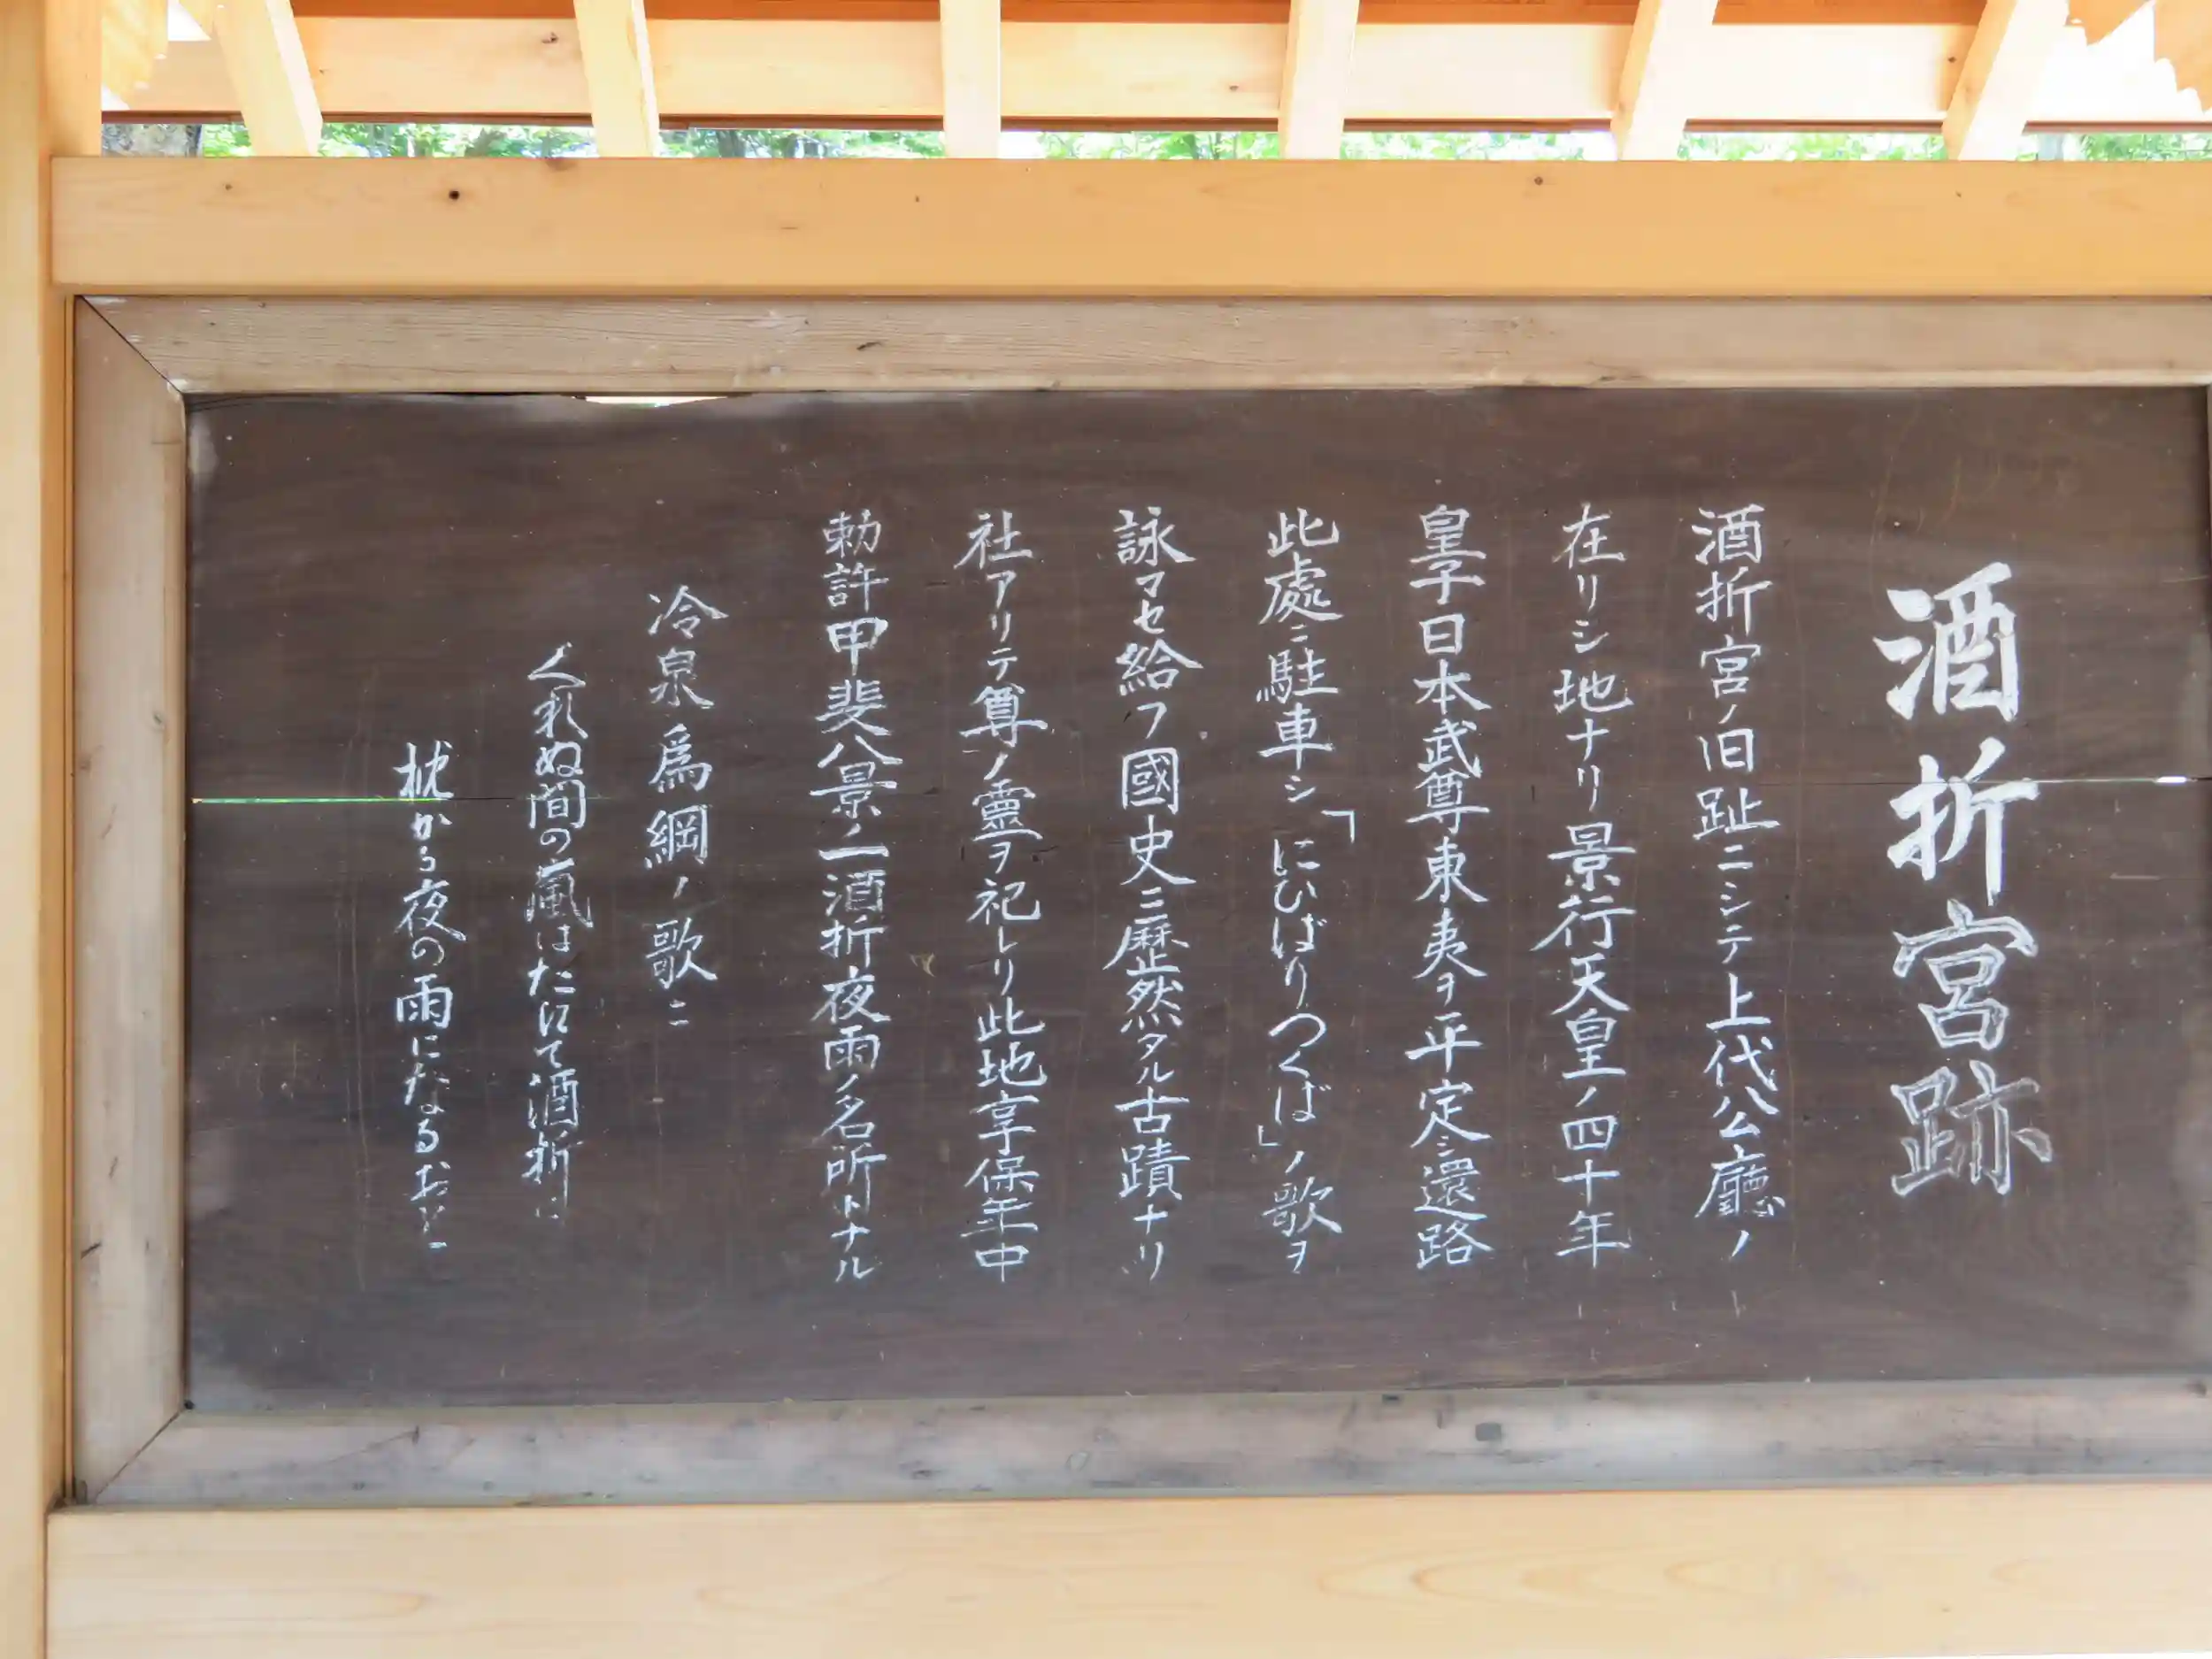 酒折宮跡
酒折宮ノ旧趾ニシテ上代公廳ノ
在リシ地ナリ景行天皇ノ四十年
皇子日本武尊東夷ヲ平定シ還路
此處ニ駐車シ「にひばりつくば」ノ歌ヲ
詠マセ給フ國史ニ歴然タル古蹟ナリ
社アリテ尊ノ靈ヲ祀レリ此地享保年中
勅許甲斐八景ノ一酒折夜雨ノ名所トナル
冷泉為綱ノ歌ニ
くれぬ間の嵐はたにて酒折に
枕から夜の雨になるおと